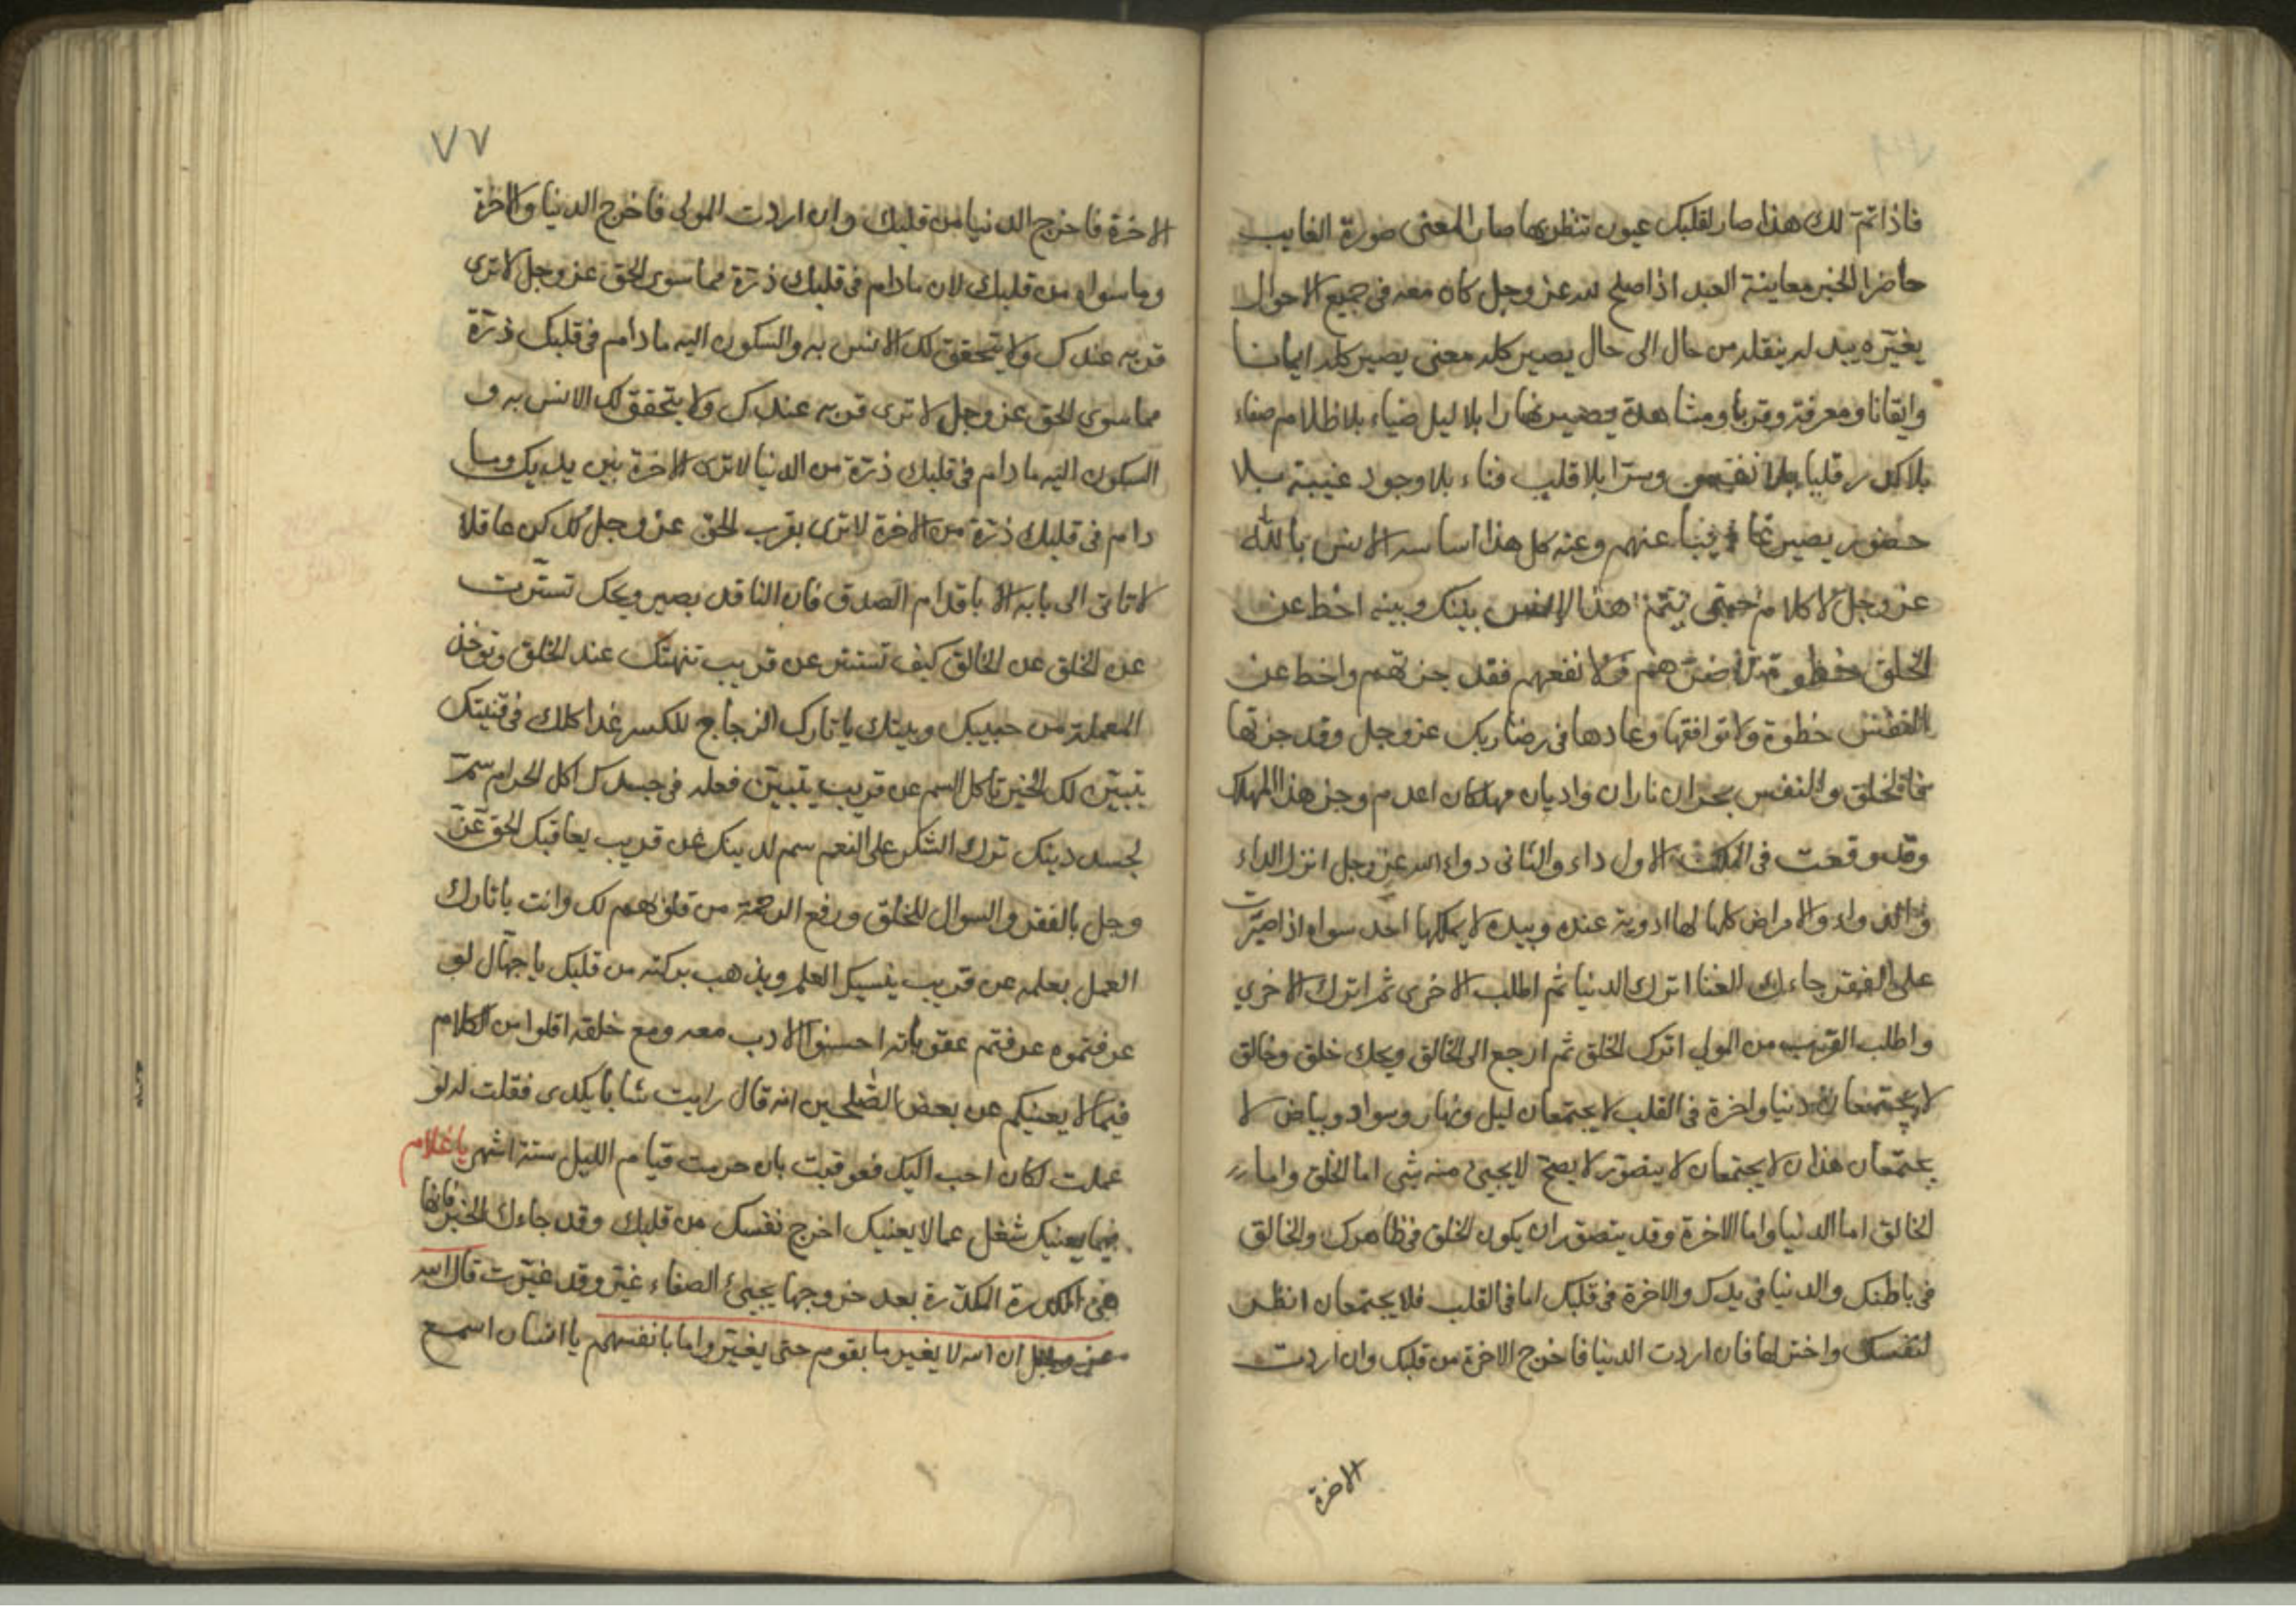 فاذا تم لك هذا صار لقلبك عيون تنظر بها صار المعنى صورة الغايب
حاضرا الخبر معاينة العبد اذا صلح لله عز وجل كان معه في جميع الاحوال
يغيره يبدله ينقله من حال الى حال يصير كله معنى يصير كله ايمانا
وايقانا ومعرفة وقربا ومشاهدة يصير نهارا بلا ليل ضياء بلا ظلام صفاء
بلا كدر قلبا بلا نفس وسرا بلا قلب فناء بلا وجود غيبة بلا
حضور يصير غايبا عنهم وعنه كل هذا اساسه الانس بالله
عز وجل لا كلام حتى يتم هذا الانس بينك وبينه اخط عن
الخلق خطوة لا ضرهم ولا نفعهم فقد جزتهم واخط عن
النفس خطوة ولا توافقها وعادها في رضا ربك عز وجل وقد جزتها
فالخلق والنفس بحران ناران واديان مهلكان اعدم وجز هذا المهلك
وقد وقعت في الملك الاول داء والثاني دواء الله عز وجل انزل الداء
والدواء والامراض كلها لها ادوية عنده وبيده لا يملكها احد سواه اذا صبرت
على الفقر جاءك الغنا اترك الدنيا ثم اطلب الاخرى ثم اترك الاخرى
واطلب القرب من المولى اترك الخلق ثم ارجع الى الخالق ويحك خلق وخالق
لا يجتمعان دنيا واخرة في القلب لا يجتمعان ليل ونهار وسواد وبياض لا
يجتمعان هذان لا يجتمعان لا يتصور لا يصح لا يجيئ منه شي اما الخلق واما
الخالق اما الدنيا واما الاخرة وقد يتصور ان يكون الخلق في ظاهرك والخالق
في باطنك والدنيا في يدك والاخرة في قلبك اما في القلب فلا يجتمعان انظر
لنفسك واختر لها فان اردت الدنيا فاخرج الاخرة من قلبك وان اردت
الاخرة
٧٧
الاخرة فاخرج الدنيا من قلبك وان اردت المولى فاخرج الدنيا والاخرة
وما سواه من قلبك لان ما دام في قلبك ذرة مما سوى الحق عز وجل لا ترى
قربه عندك ولا يتحقق لك الانس به والسكون اليه ما دام في قلبك ذرة
مما سوى الحق عز وجل لا ترى قربه عندك ولا يتحقق لك الانس به و
السكون اليه ما دام في قلبك ذرة من الدنيا لا ترى الاخرة بين يديك وما
دام في قلبك ذرة من الاخرة لا ترى بقرب الحق عز وجل كل كن عاقلا
لا تاتى الى بابه الا باقدام الصدق فان الناقد بصير ويحك تسترت
عن الخلق عن الخالق كيف تستتر عن قريب تنهتك عند الخلق وتوخذ
المعملة من حبيبك وبيتك يا تارك الزجاج للكسر غدا كلك في قنيتك
يتبين لك الخبر تاكل السم عن قريب يتبين فعله في جسدك اكل الحرام سم
لجسد دينك ترك الشكر على النعم سم لدينك عن قريب يعاقبك الحق عز
وجل بالفقر والسوال للخلق ورفع الرحمة من قلوبهم لك وانت يا تارك
العمل بعلمه عن قريب ينسيك العلم ويذهب بركته من قلبك يا جهال لو
عرفتموه عرفتم عقوباته احسنوا الادب معه ومع خلقه اقلوا من الكلام
فيما لا يعنيكم عن بعض الصلحين انه قال رايت شابا يكدى فقلت له لو
عملت لكان احب اليك فعوقبت بان حرمت قيام الليل ستة اشهر يا غلام
فيما يعنيك شغل عما لا يعنيك اخرج نفسك من قلبك وقد جاءك الخير فانها
هى الكدرة المكدرة بعد خروجها يجيئ الصفاء غير وقد غيرت قال الله
عز وجل ان الله لا يغير ما بقوم حتى يغيروا ما بانفسهم يا انسان اسمع